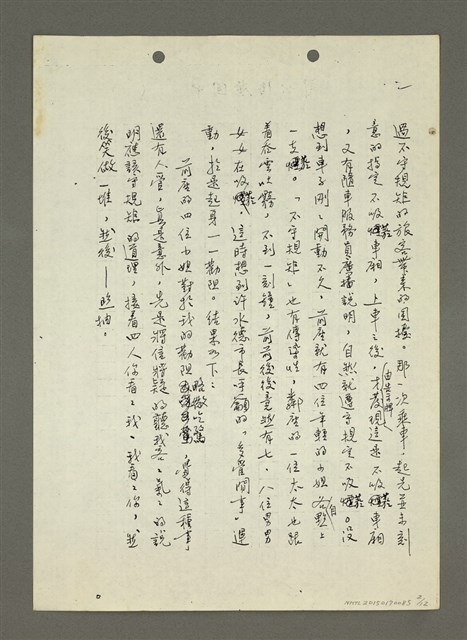 二
遇不守規矩的旅客帶來的困擾。那一次乘車，起先並未刻
意的指定不吸菸車廂，上車之後，才發現這是不吸菸車廂
由告示牌
，又有隨車服務員廣播說明，自然就遵守規定不吸菸。沒
想到車子剛剛開動不久，前座就有四位年輕的小姐各自點上
一支菸。「不守規矩」也有傳染性，鄰座的一位太太也跟
著吞雲吐霧，不到一刻鐘，前前後後竟然有七、八位男男
女女在吸菸，這時想到許水德市長呼籲的「多管閒事」運
動，於是起身一一勸阻。結果如下：
前座的四位小姐對於我的勸阻略微吃驚，覺得這種事
還有人管，真是意外，先是將信將疑的聽我客客氣氣的說
明應該守規矩的道理，接着四人你看看我、我看看你，然
後笑做一堆，然後——照抽。
NMTL20150170085
2/12